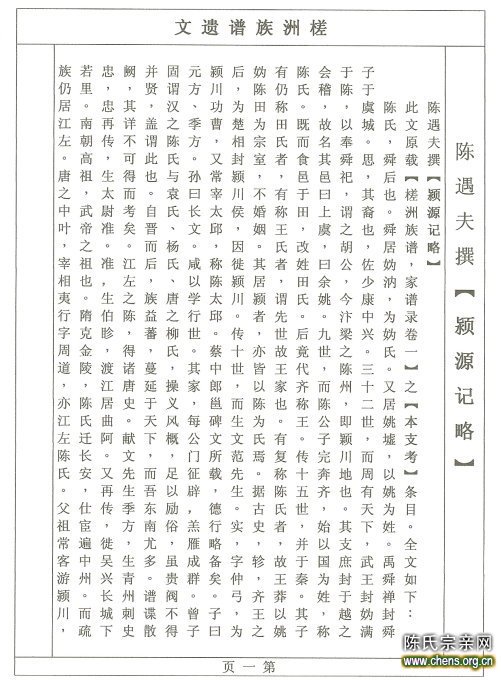 槎洲族谱遗文
陈遇夫撰【颍源记略】
陈遇夫撰【颍源记略】
此文原载【槎洲族谱,家谱录卷一】之【本支考】条目。全文如下:
陈氏,舜后也。舜居妫汭,为妫氏。又居姚墟,以姚为姓。禹舜禅封舜
子于虞城。思,其裔也,佐少康中兴。三十二世,而周有天下,武王封妫满
于陈,以奉舜祀,谓之胡公,今汴梁之陈州,即颍川地也。其支庶封于越之
会稽,故名其邑曰上虞,曰余姚。九世,而陈公子完奔齐,始以国为姓,称
陈氏。既而食邑于田,改姓田氏。后竟代齐称王。传十五世,并于秦。其子
有仍称田氏者,有称王氏者,谓先世故王家也。有复称陈氏者,故王莽以姚
妫陈田为宗室,不婚姻。其居颍者,亦皆以陈为氏焉。据古史,轸,齐王之
后,为楚相封颍川侯,因徙颍川。传十世,而生文范先生。实,字仲弓,为
颍川功曹,又常宰太邱,称陈太邱。蔡中郎邕碑文所载,德行略备矣。子曰
元方、季方。孙曰长文。咸以学行世。其家,每公门征辟,羔雁成群。曾子
固谓汉之陈氏与袁氏、杨氏、唐之柳氏,操义风概,足以励俗,虽贵阀不得
并贤,盖谓此也。自晋而后,族益蕃,蔓延于天下,而吾东南尤多。谱谍散
阙,其详不可得而考矣。江左之陈,得诸唐史。献文先生季方,生青州刺史
忠,忠再传,生太尉准。准,生伯眕,渡江居曲阿。又再传,徙吴兴长城下
若里。南朝高祖,武帝之祖也。隋克金陵,陈氏迁长安,仕宦遍中州。而疏
族仍居江左。唐之中叶,宰相夷行字周道,亦江左陈氏。父祖常客游颍川,
第一页
陈氏宗亲网
www.chens.org.cn